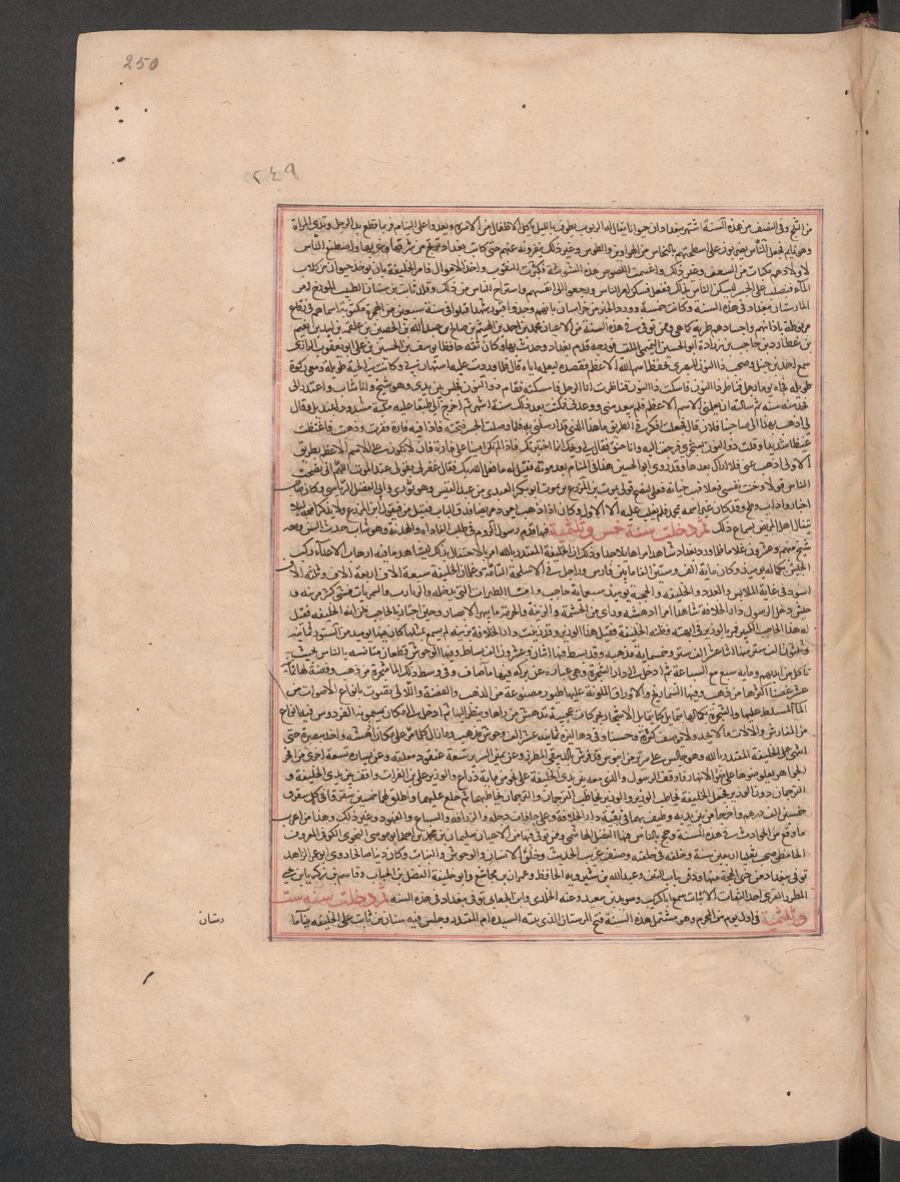 250
٢٤٩
من الثلج وفي النصف من هذه السنة اشتهر ببغداد ان حيوانا يقال له الزبزب يطوف بالليل ياكل الاطفال من الاسرة ويعدوا على النيام فربما قطع يد الرجل وثدي المراة
وهو نايم فجعل الناس يضربون على اسطحتهم بالنحاس من الهواوين والطوس وغير ذلك ينفرونه عنهم حتى كانت بغداد ترتج من شرقها وغربها واصطنع الناس
لاولادهم مكبات من السعف وغير ذلك واغتنمت اللصوص هذه الشوشة فكثرت النقوب واخذ الاموال فامر الخليفة بان يوخذ حيوان من كلاب
الماء فيصلب على الجسر ليسكن الناس بذلك ففعل فسكن امر الناس ورجعوا الى انفسهم واستراح الناس من ذلك وقلد ثابت بن سنان الطبيب المورخ امر
المارستان ببغداد في هذه السنة وكانت خمسة وورد الخبر من خراسان بانهم وجدوا قبور شهدا قتلوا في سنة سبعين من الهجرة مكتوبة اسماهم في رقاع
مربوطة باذانهم واجسادهم طرية كما هي وممن توفي في هذه السنة من الاعيان محمد بن احمد بن الهيثم بن صالح بن عبد الله بن الحصين بن علقمة بن لبيد بن نعيم
بن عطارد بن حاجب بن زرارة ابو الحسن التميمي الملقب فروجة قدم بغداد وحدث بها وكان ثقة حافظا يوسف بن الحسين بن علي ابو يعقوب الرازي
سمع احمد بن حنبل وصحب ذا النون المصري
طويلة فجاه يوما رجل فناظر ذا النون فاسكت ذا النون فناظرت انا الرجل فاسكته فقام ذو النون فجلس بين يدي وهو شيخ وانا شاب واعتذر الي
فخدمته سنة ثم سالته ان يعلمني الاسم الاعظم فلم يبعد مني ووعدني فمكثت بعد ذلك ستة اشهر ثم اخرج الي طبقا عليه مكبة مشدودا بمنديل وقال
لي اذهب بهذا الى صاحبنا فلان قال فجعلت افكر في الطريق ما هذا الذي قد ارسلني به فلما وصلت الجسر فتحته فاذا فيه فارة ففرت وذهبت فاغتظت
غيظا شديدا وقلت ذو النون يسخر بي فرجعت اليه وانا حنق فقال لي ويحك انما اختبرتك فاذا لم تكن امينا على فارة فان لا تكون على الاسم الاعظم بطريق
الاولى اذهب عني فلا اراك بعدها وقد روي ابو الحسين هذا في المنام بعد موته فقيل له ما فعل الله بك فقال غفر لي بقولي عند الموت اللهم اني نصحت
الناس قولا وخنت نفسي فعلا فهب خيانة فعلي لنصح قولي يموت بن المزرع بن يموت ابو بكر العبدي من عبد القيس وهو ثوري وابي الفضل الرياشي وكان صاحب
اخبار واداب وملح وقد كان غير اسمه محمد فلم يغلب عليه الا الاول وكان اذا ذهب يعود مريضا فدق الباب فقيل من فيقول ابن المزرع ولا يذكر اسمه ليلا
يتفال اهل المريض بسماع ذلك ثم دخلت سنة خمس وثلثمية فيها قدم رسول ملك الروم في طلب المفاداه والهدنة وهو شاب حدث السن ومعه
شيخ منهم وعشرون غلاما فلما ورد بغداد شاهد امرا هايلا جدا وذلك ان الخليفة المقتدر بالله امر بالاحتفال بذلك ليشاهد ما فيه ارهاب الاعداء فركب
الجيش بكماله يوميذ وكان ماية الف وستين الفا ما بين فارس وراجل في الاسلحة التامة وغلمان الخليفة سبعة الاف اربعة الاف بيض وثلثة الاف
اسود في غاية الملابس والعدد والحلية والحجبة يوميذ سبعماية حاجب
حيش ودخل الرسول دار الخلافة شاهد امرا ادهشه وراى من الحشمة والزينة والحرمة ما يبهر الابصار وحين اجتاز بالحاجب ظن انه الخليفة فقيل
له هذا الحاجب الكبير فمر بالوزير في ابهته فظنه الخليفة فقيل هذا الوزير وقد زينت دار الخلافة بزينة لم يسمع بمثلها كان فيها يوميذ من الستور ثمانية
وثلثون الف ستر منها اثنا عشر الف ستر وخمسماية مذهبة وقد بسط فيها اثنان وعشرون الف بساط وفيها الوحوش قطعان متانسه بالناس بحيث
تاكل من ايديهم وماية سبع مع السباعة ثم ادخل الى دار الشجرة وهي عبارة عن بركة فيها ماء صاف وفي وسط ذلك الماء شجرة من ذهب وفضة لها ثمانية
عشر غصنا اكثرها من ذهب وفيها الشماريخ والاوراق الملونة عليها طيور مصنوعة من الذهب والفضة واللآلي تصوت بانواع الاصوات من
الماء المسلط عليها والشجرة بكمالها تتمايل كما تتمايل الاشجار بحركات عجيبة تدهش من يراها وينظر اليها ثم ادخل الى مكان يسمونه الفردوس فيه انواع
من المفارش والالات ما لا يحد ولا يوصف كثرة وحسنا وفي دهاليزه ثمانية عشر الف جوشن مذهب وما زال كلما مر على مكان ادهشه واخذ ببصره حتى
انتهى الى الخليفة المقتدر بالله وهو جالس على سرير من ابنوس قد فرش بالديبقي المطرز وعن يمين السرير تسعة عقود معلقة وعن يساره تسعة اخرى من افخر
الجواهر يعلو ضوءها على ضوء النهار فاوقف الرسول والذي معه بين يدي الخليفة على نحو من ماية ذراع والوزير علي بن الفرات واقف بين يدي الخليفة و
الترجمان دون الوزير فجعل الخليفة يخاطب الوزير والوزير يخاطب الترجمان والترجمان يخاطبهما ثم خلع عليهما واطلق لهما خمسين سقرقا في كل سقرق
خمسين الف درهم واخرجا من بين يديه وطيف بهما في بقية دار الخلافة وعلى حافات دجلة والزرافة والسباع والفهود وغير ذلك وهذا من اغرب
ما وقع من الحوادث في هذه السنة وحج بالناس فيها الفضل الهاشمي وممن توفي فيها من الاعيان سليمان بن محمد بن احمد ابو موسى النحوي الكوفي المعروف
الحامض صحب ثعلبا اربعين سنة وخلفه في حلقته وصنف غريب الحديث وخلق الانسان والوحوش والنبات وكان دينا صالحا روى ابو عمر الزاهد
توفي ببغداد من ذي الحجة منها ودفن بباب التين وعبد الله بن شيرويه الحافظ وعمران بن مجاشع وابو خليفة الفضل بن الحباب وقاسم بن زكريا بن يحيى
المطرز المقري احد الثقات الاثبات سمع ابا كريب وسويد بن سعيد وعنه الخلدي وابن الجعابي توفي ببغداد في هذه السنة ثم دخلت سنة ست
وثلثمية في اول يوم من المحرم وهو مستهل هذه السنة فتح المرستان الذي بنته السيدة ام المقتدر وجلس فيه سنان بن ثابت